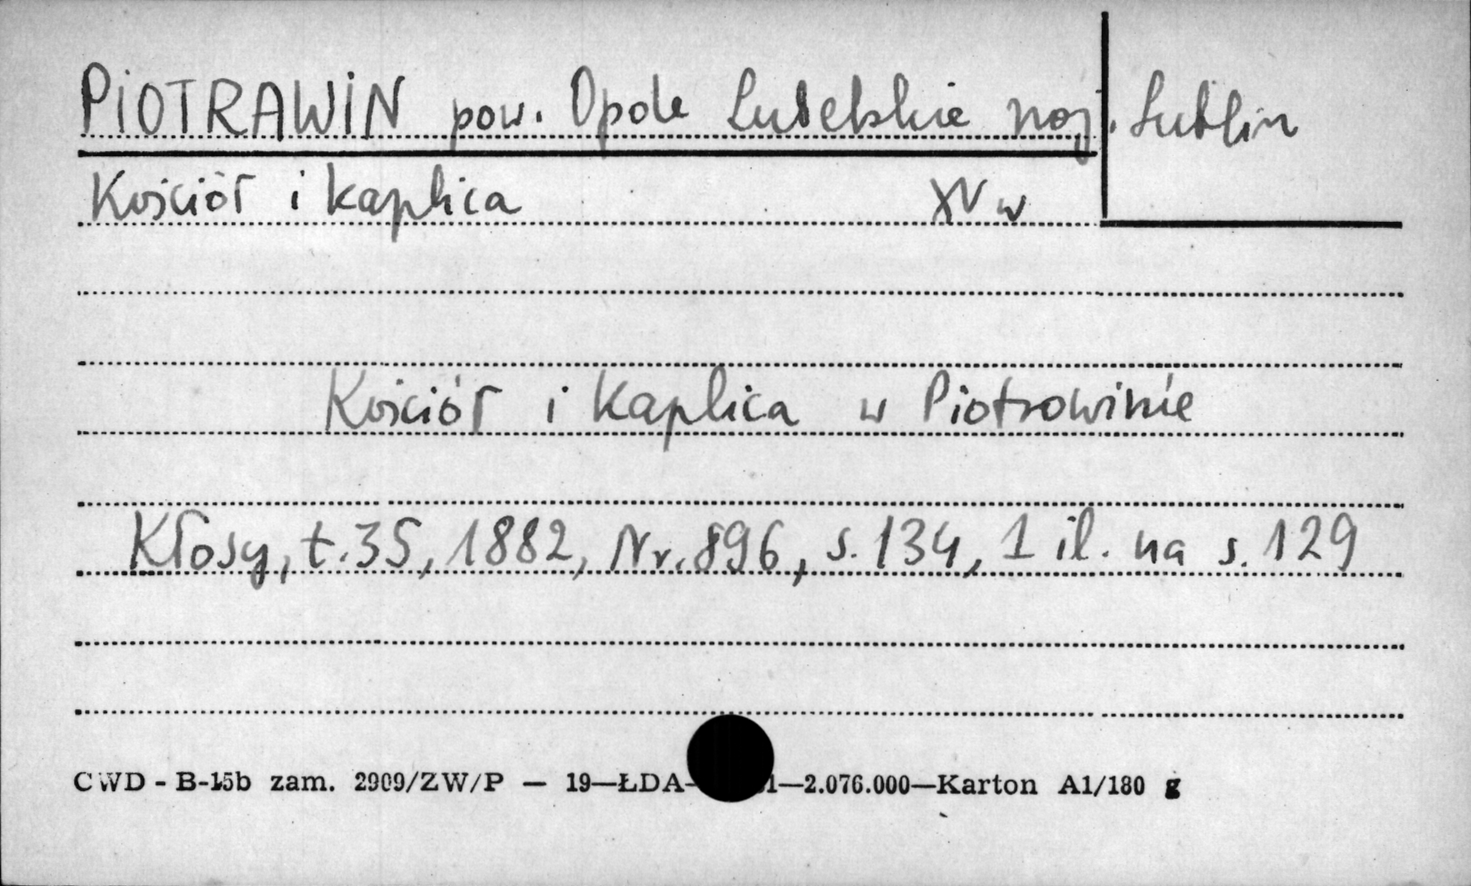 PIOTRAWIN pow. Opole Lubelskie woj. Lublin
Kościół i kaplica XV w
Kościół i Kaplica w Piotrowinie
Kłosy, t. 35, 1882, Nr. 896, s. 134, 1 il. na s. 129
CWD - B-15b zam. 2909/ZW/P — 19—ŁDA- 1—2.076.000—Karton A1/180 g